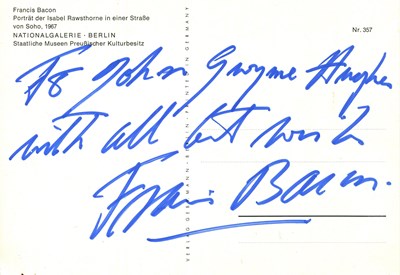 Francis Bacon
Porträt der Isabel Rawsthorne in einer Straße
von Soho, 1967
NATIONALGALERIE · BERLIN
Staatliche Museen Preußischer Kulturbesitz
Nr. 357
To John Gwyme Hughes
with all best wishes
Francis Bacon.